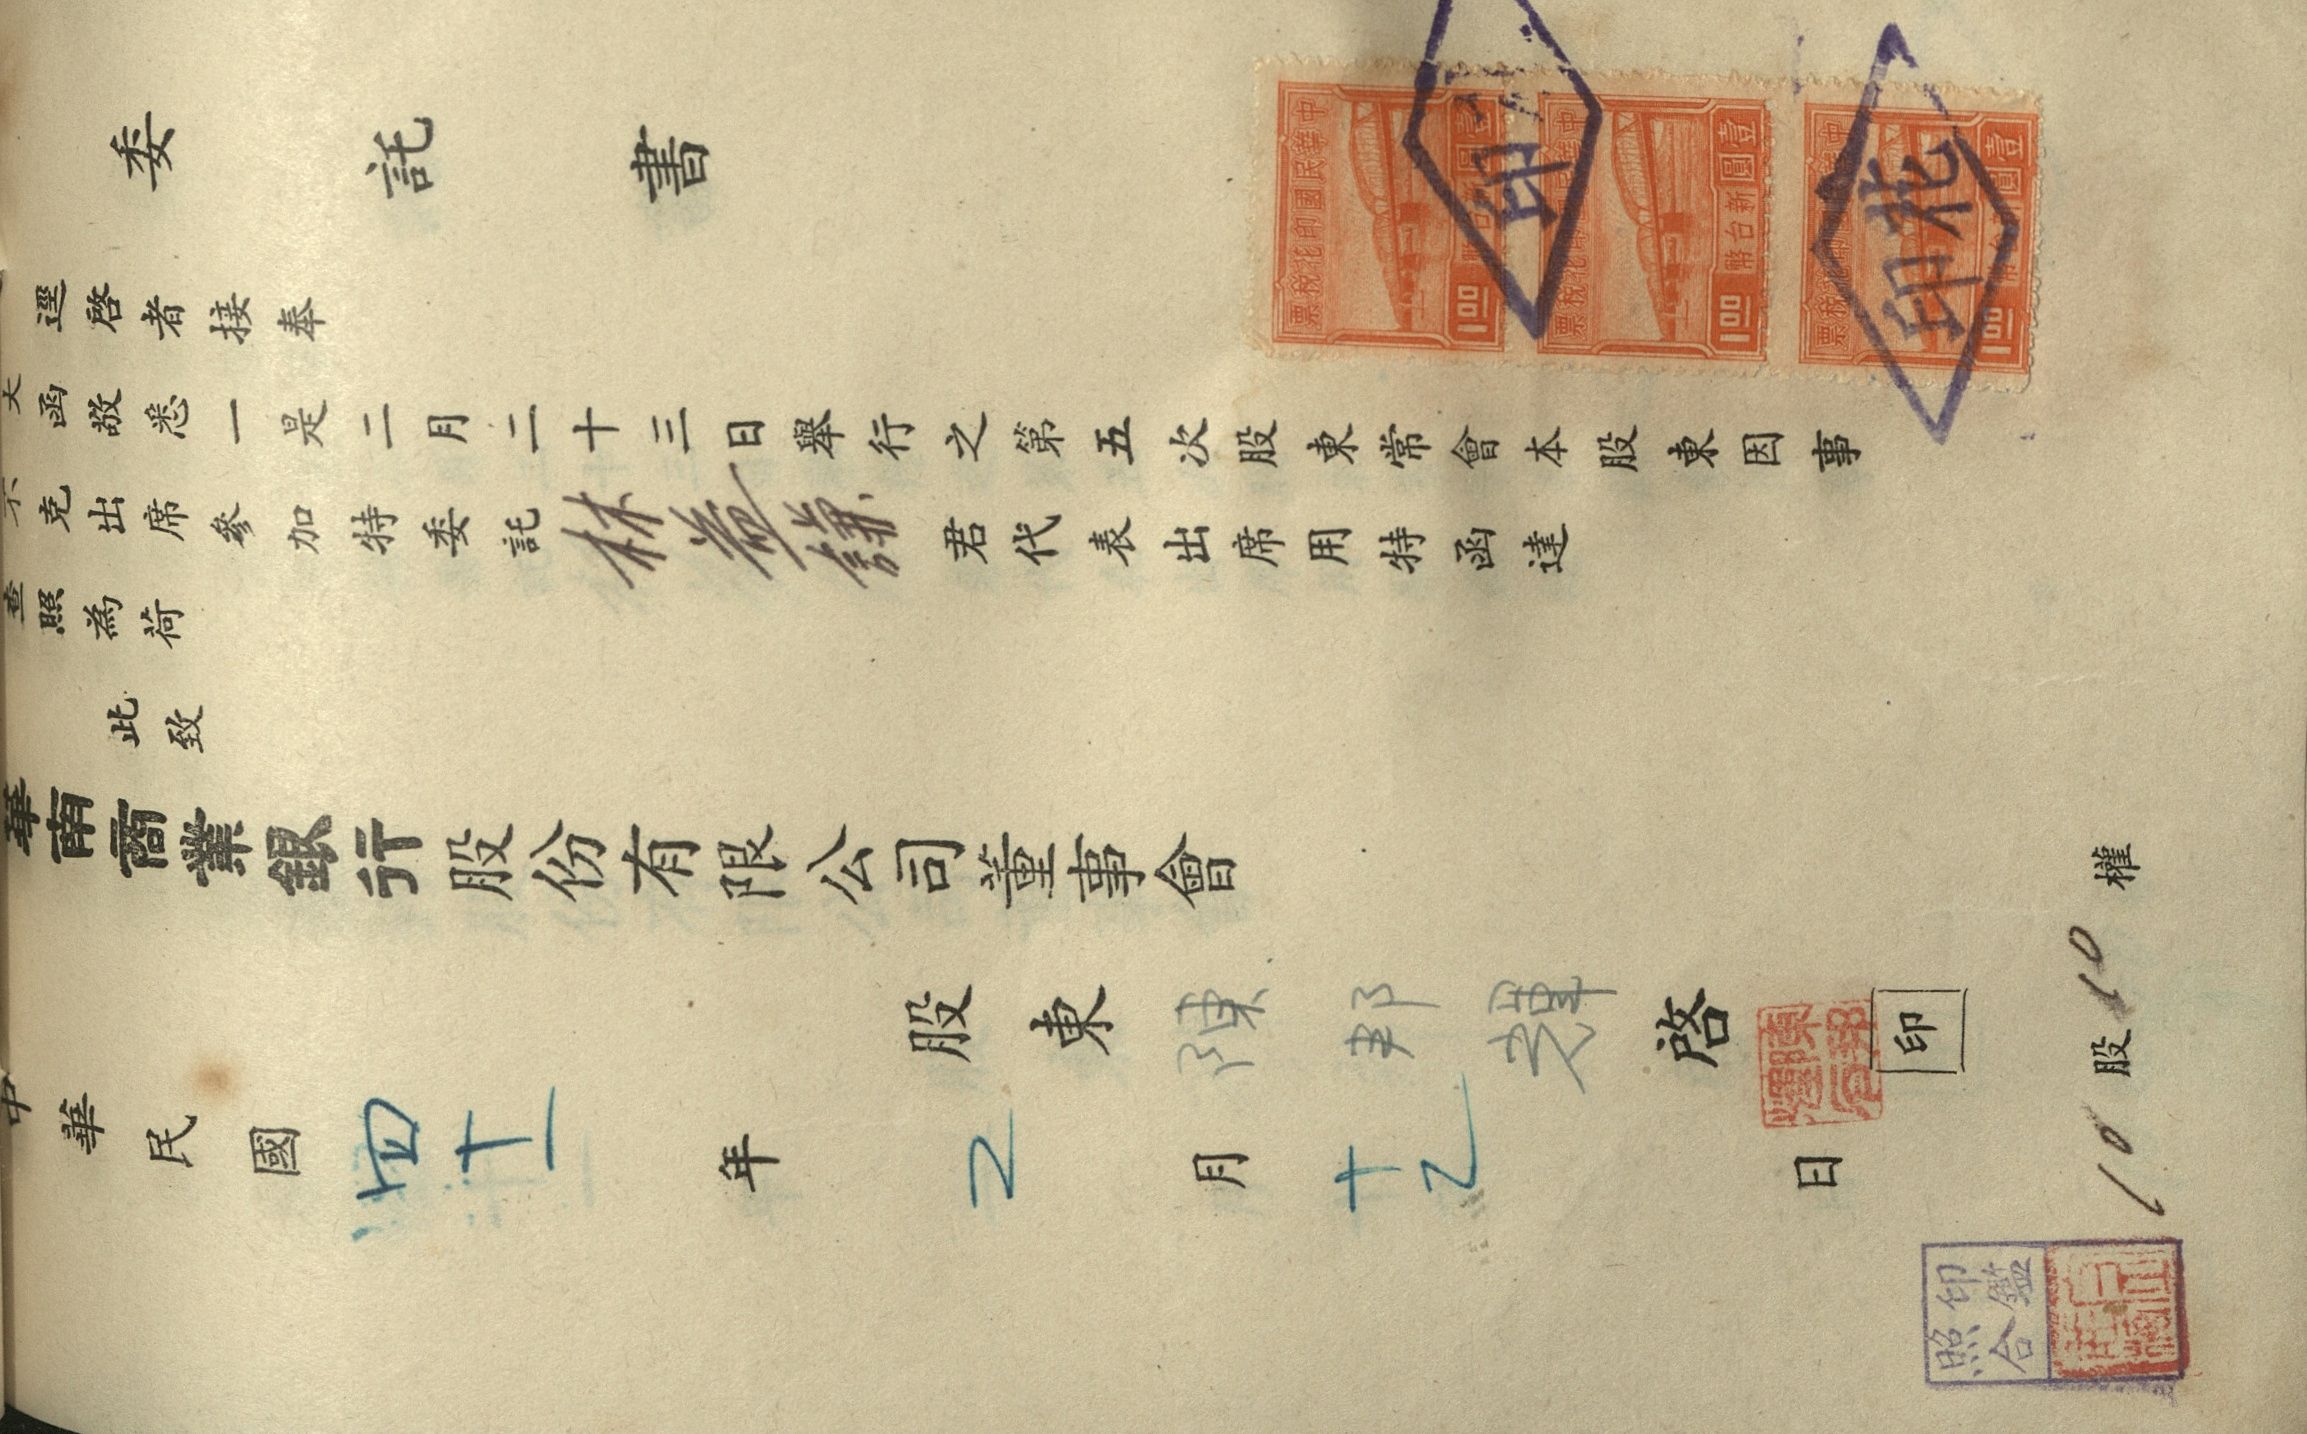 委託書
逕啓者接奉
大函敬悉一是二月二十三日舉行之第五次股東常會本股東因事
不克出席參加特委託林 君代表出席用特函達
查照為荷
此致
華南商業銀行股份有限公司董事會
股東陳邦輝啓
印
中華民國四十一年2月十2日
10股10權
印鑑
照合
中華民國印花稅票
壹圓
新台幣
1.00
中華民國印花稅票
壹圓
新台幣
1.00
中華民國印花稅票
壹圓
新台幣
1.00
印花
印花